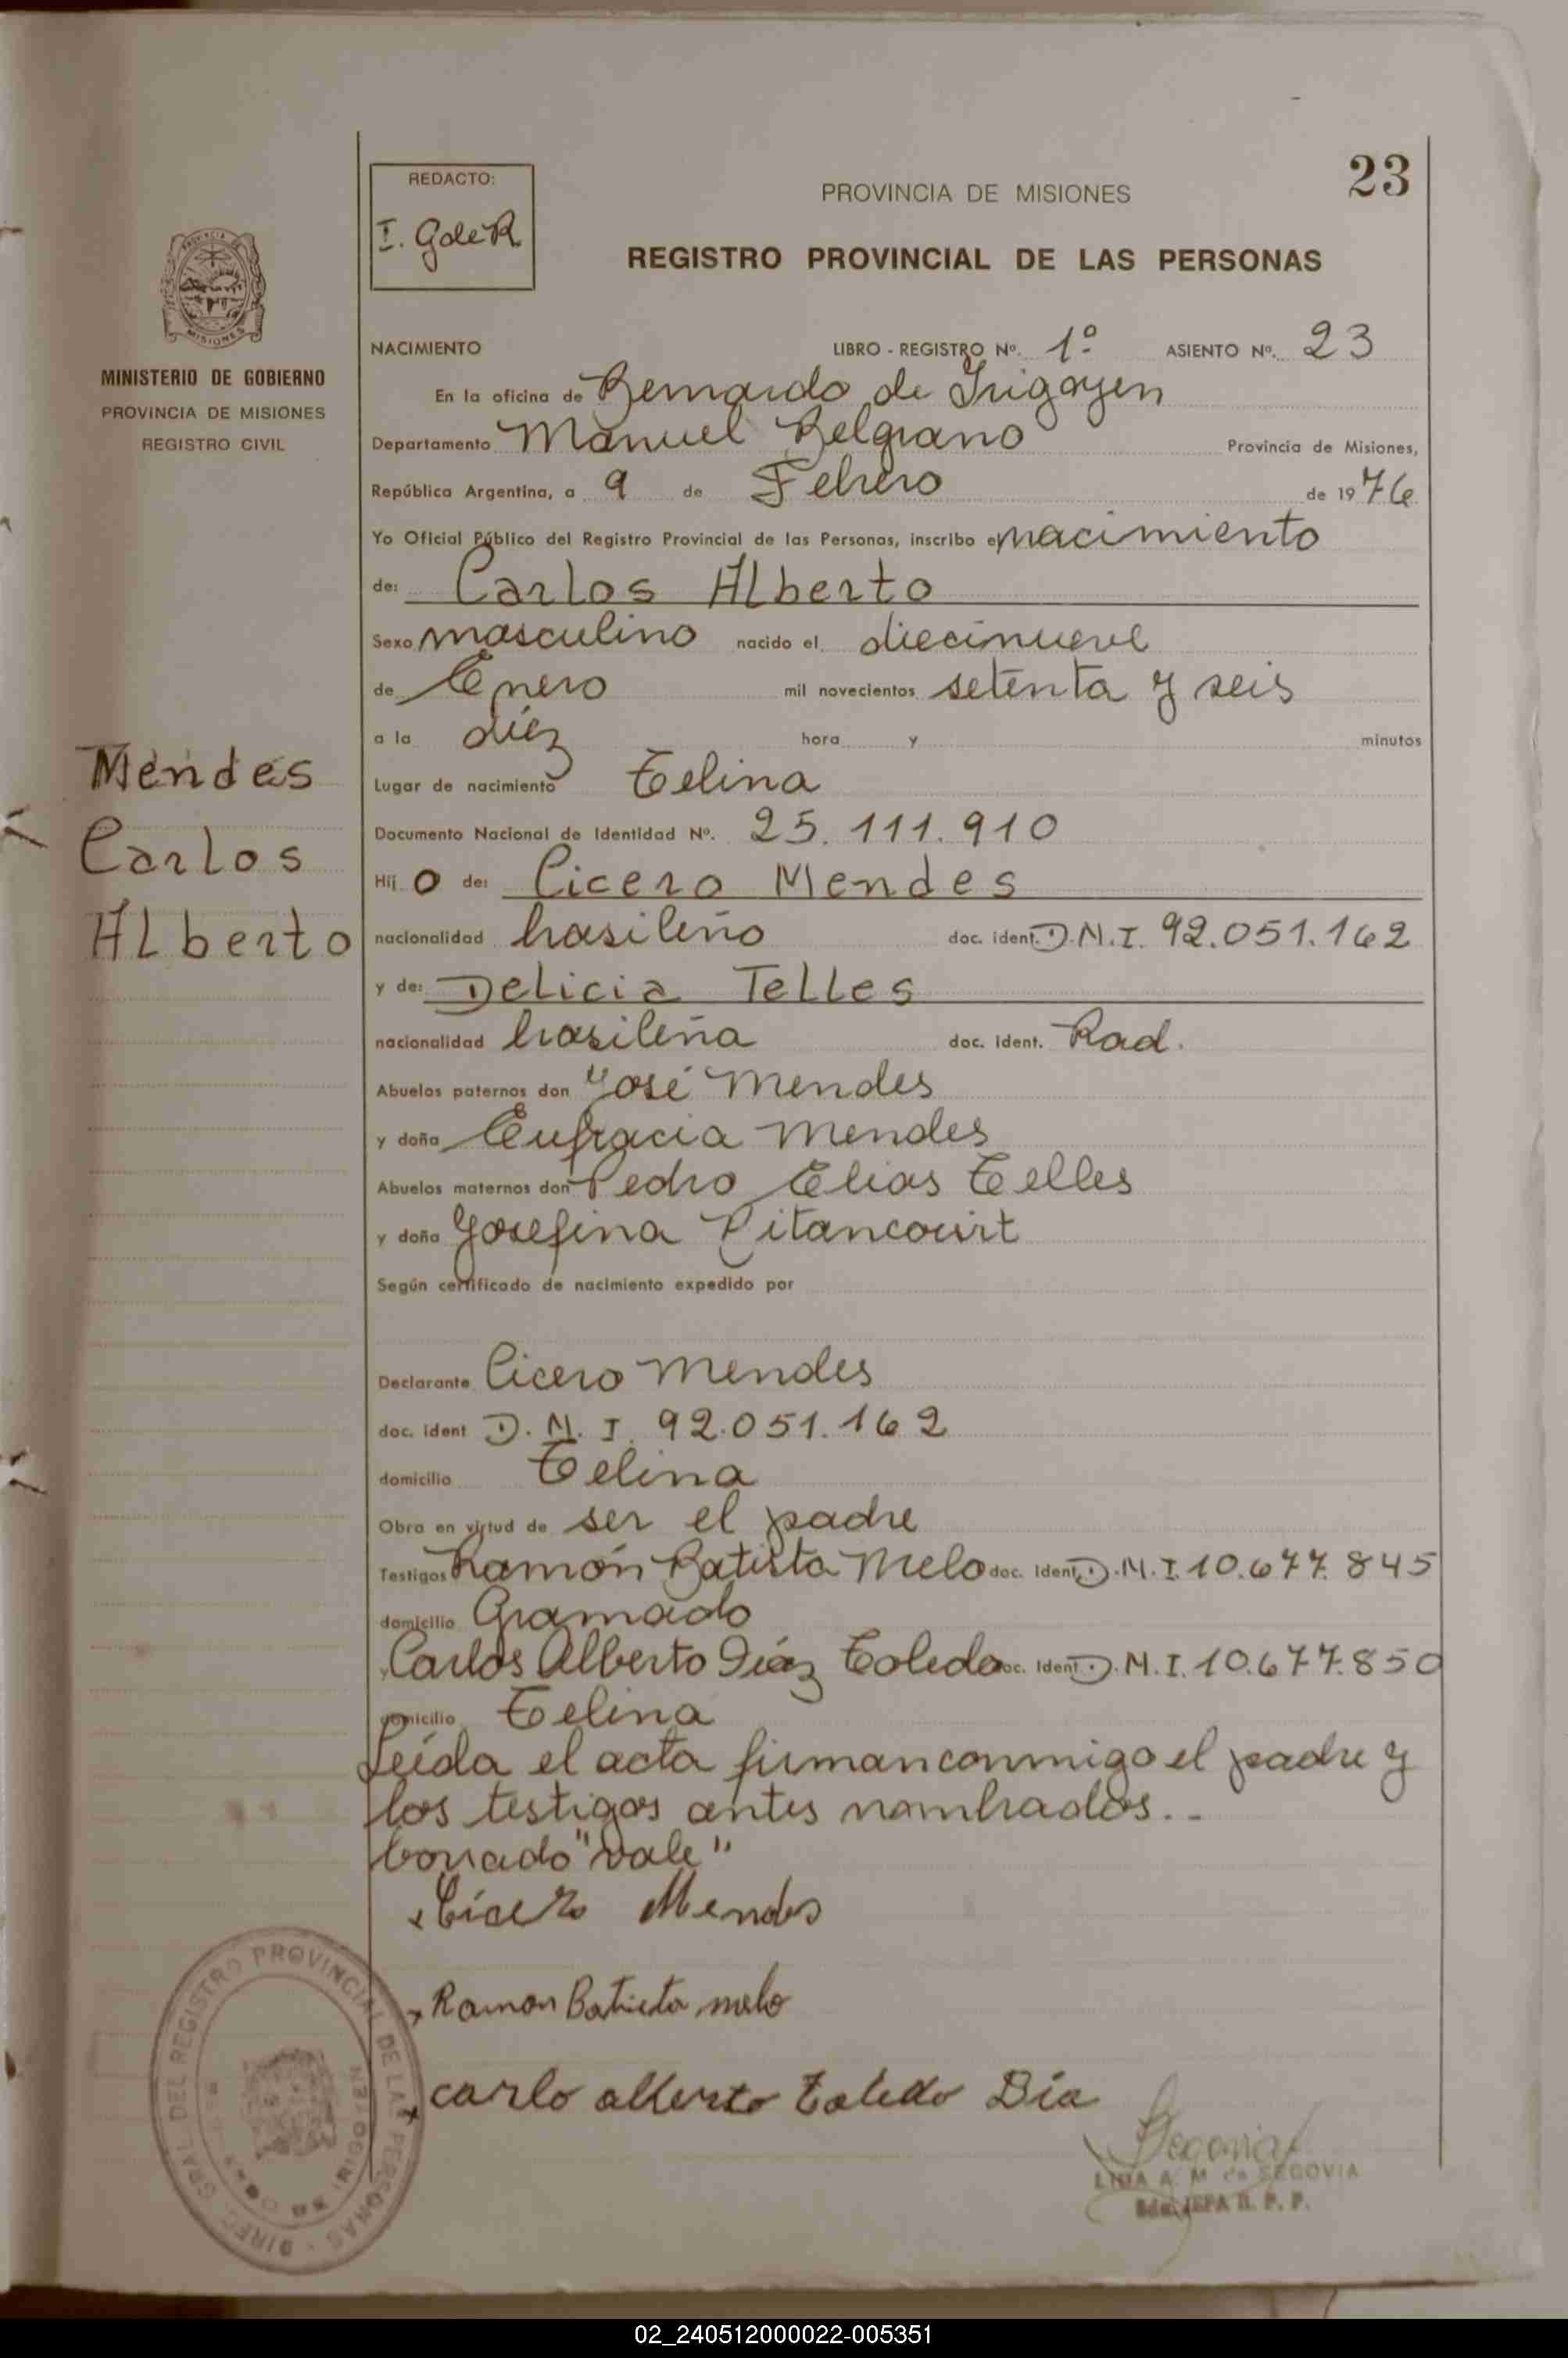 23
REDACTO:
PROVINCIA DE MISIONES
REGISTRO PROVINCIAL DE LAS PERSONAS
MINISTERIO DE GOBIERNO
PROVINCIA DE MISIONES
REGISTRO CIVIL
NACIMIENTO LIBRO - REGISTRO Nº. 1º ASIENTO Nº. 23
En la oficina de Bernardo de Irigoyen
Departamento Manuel Belgrano Provincia de Misiones,
República Argentina, a 9 de Febrero de 1976
Yo Oficial Público del Registro Provincial de las Personas, inscribo el nacimiento
de: Carlos Alberto
Sexo masculino nacido el diecinueve
de Enero mil novecientos setenta y seis
a la diez hora y minutos
Mendes
Carlos
Alberto
Lugar de nacimiento Telina
Documento Nacional de Identidad Nº. 25.111.910
Hij o de: Cicero Mendes
nacionalidad brasileño doc. ident. D.N.I. 92.051.162
y de: Delicia Telles
nacionalidad brasileña doc. ident. Rad.
Abuelos paternos don José Mendes
y doña Eufracia Mendes
Abuelos maternos don Pedro Elias Telles
y doña Josefina Bitancourt
Según certificado de nacimiento expedido por
Declarante Cicero Mendes
doc. ident D.N.I. 92.051.162
domicilio Telina
Obra en virtud de ser el padre
Testigos Ramón Batista Melo doc. ident. D.N.I. 10.677.845
domicilio Gramado
y Carlos Alberto Diáz Toledo doc. ident. D.N.I. 10.677.850
domicilio Telina
Leída el acta firman conmigo el padre y
los testigos antes nombrados..-
borrado "vale"
Cícero Mendes
Ramon Batista melo
carlo alberto Toledo Día
Segovia
LIDIA A. M de SEGOVIA
JEFA R. P. P.
DIREC. GRAL. DEL REGISTRO PROVINCIAL DE LAS PERSONAS
02_240512000022-005351